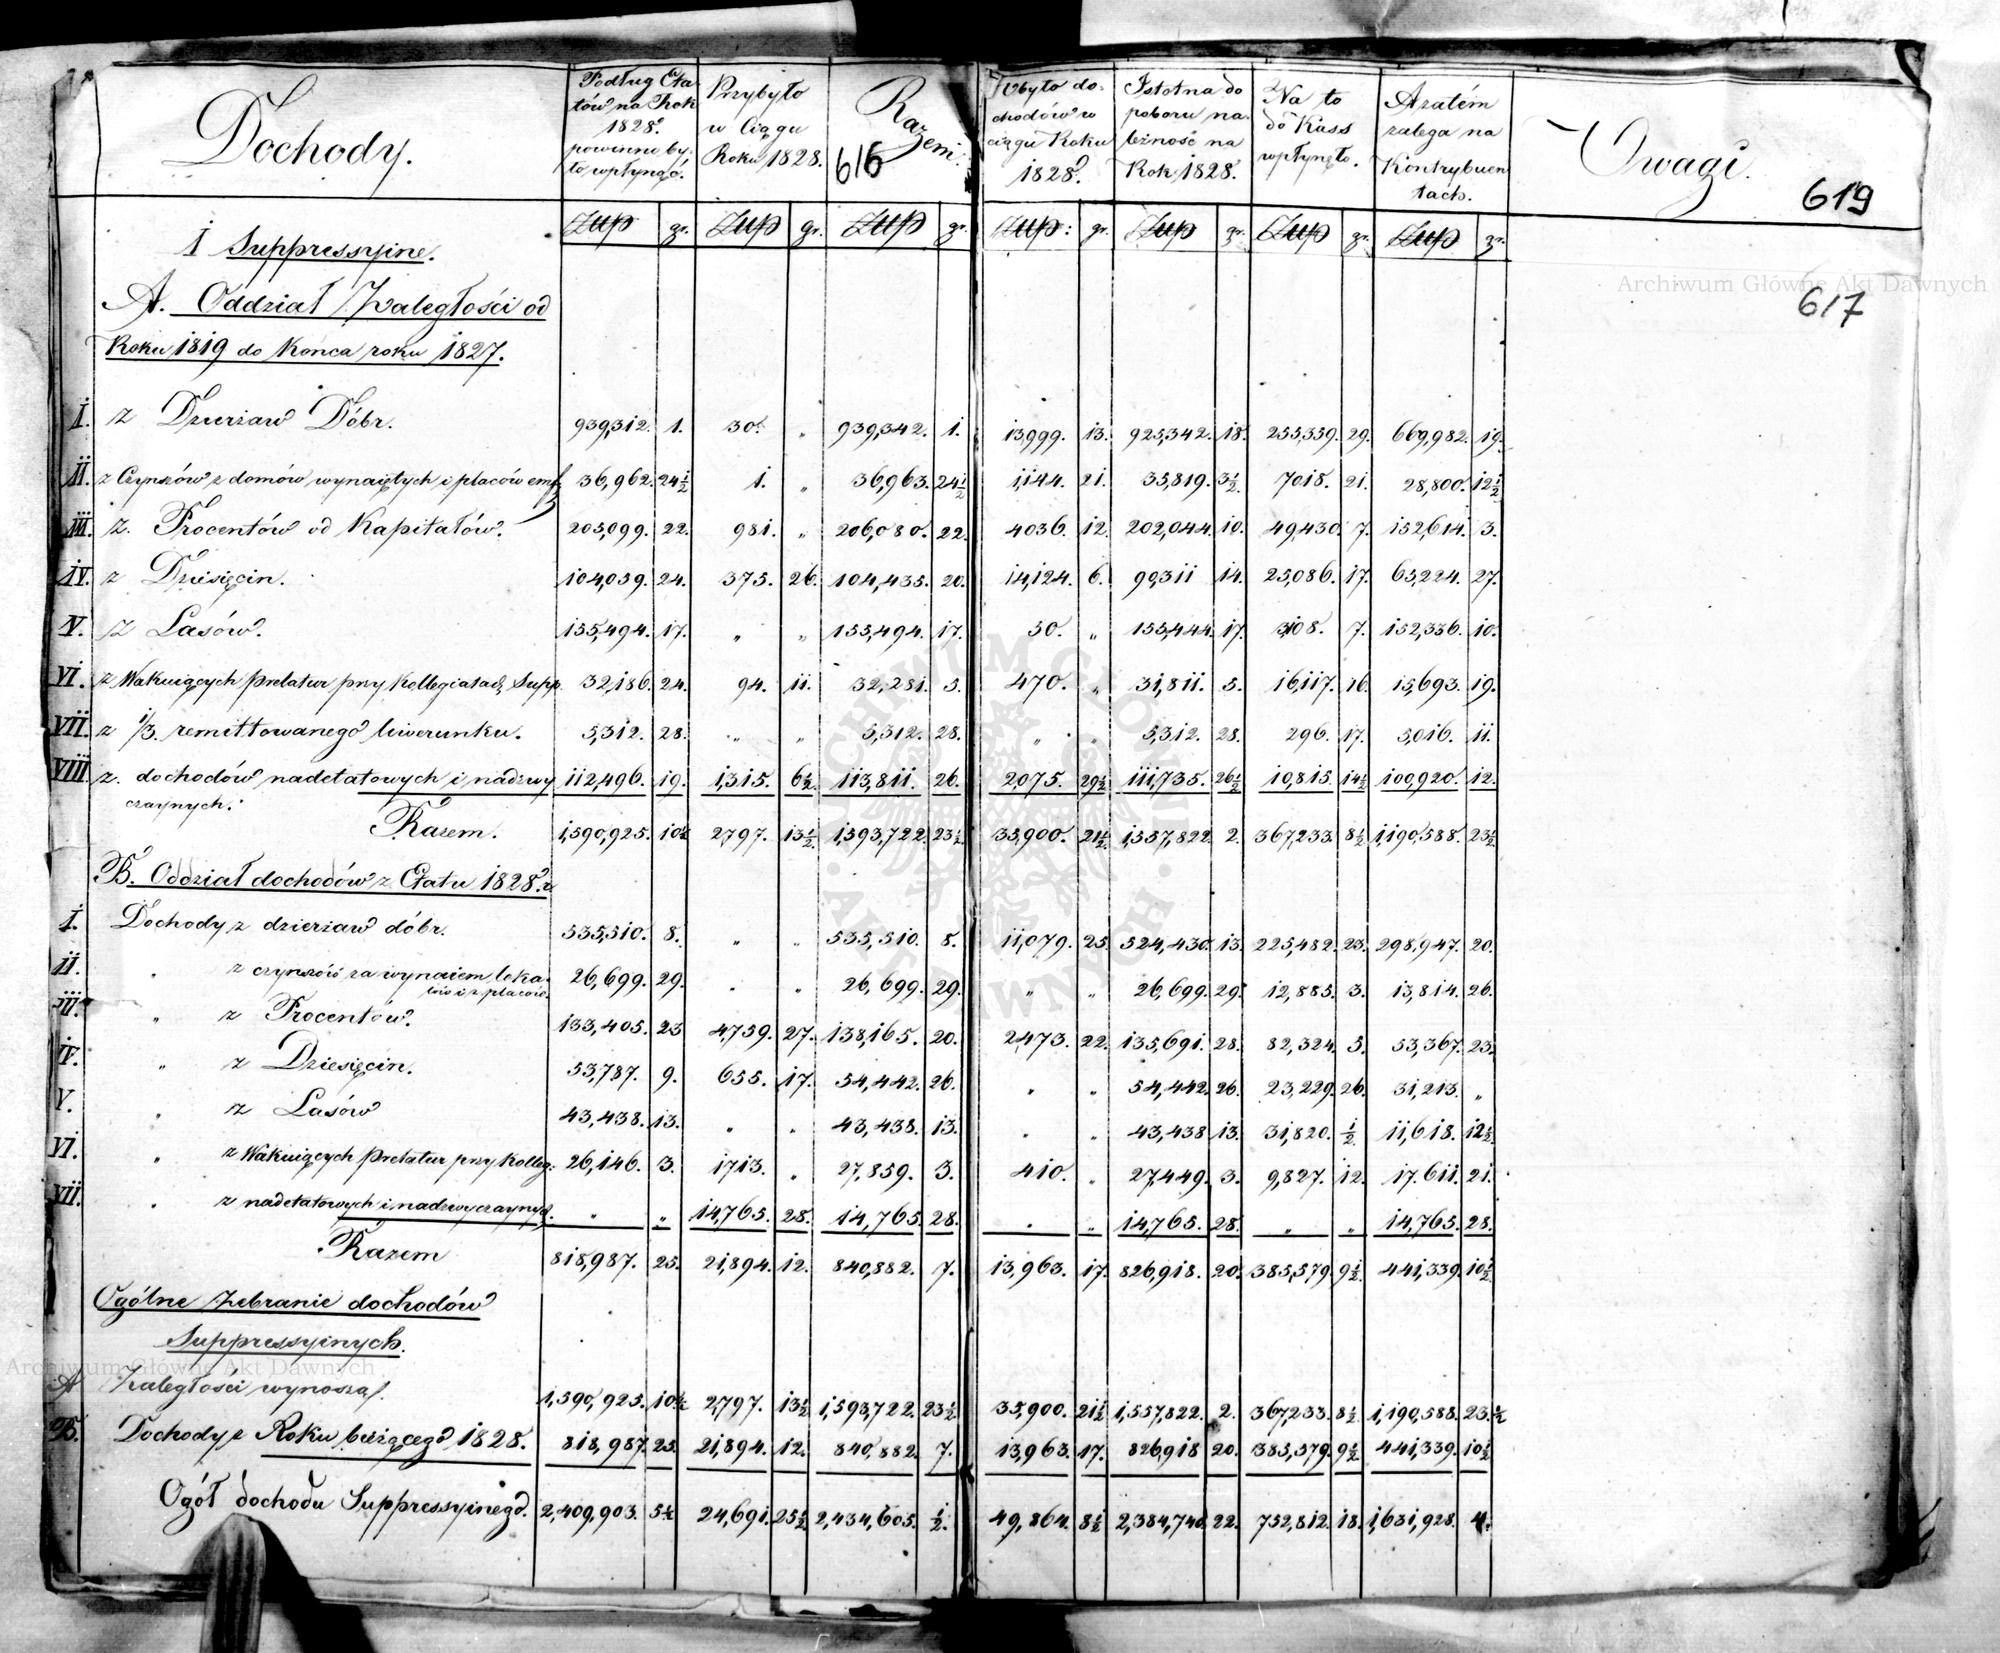 Dochody.
Podług Eta-
tów na Rok
1828.
powinno by-
ło wpłynąć.
Przybyło
w Ciągu
Roku 1828.
Razem.
616
Ubyło do-
chodów w
ciągu Roku
1828.
Istotna do
poboru na-
leżność na
Rok 1828.
Na to
do Kass
wpłynęło.
A zatém
zalega na
Kontrybuen
tach.
Uwagi.
619
617
Złłp gr. Złłp gr. Złłp gr. Złłp: gr. Złłp gr. Złłp gr. Złłp gr.
I Suppressyine.
A. Oddział Zaległości od
Roku 1819 do Końca roku 1827.
I. z Dzierżaw Dóbr. 939,312. 1. 30. „ 939,342. 1. 13,999. 13. 925,342. 18. 255,359. 29. 669,982. 19.
II. z Czynszów z domów wynaiętych i placów emf. 36,962. 24½ 1. „ 36,963. 24½ 1,144. 21. 35,819. 3½. 7018. 21. 28,800. 12½
III. z. Procentów od Kapitałów. 205,099. 22. 981. „ 206,080. 22. 4036. 12. 202,044. 10. 49,430. 7. 152,614. 3.
IV. z Dziesięcin. 104,059. 24. 375. 26. 104,435. 20. 14,124. 6. 90,311 14. 25,086. 17. 65,224. 27.
V. z Lasów. 155,494. 17. „ „ 155,494. 17. 50. „ 155,444. 17 3,108. 7. 152,336. 10.
VI. z Wakuiących prelatur przy Kollegiatach Supp. 32,186. 24. 94. 11. 32,281. 5. 470. „ 31,811. 5. 16,117. 16. 15,693. 19.
VII. z 1/3. remittowanego liwerunku. 5,312. 28. „ „ 5,312. 28. „ „ 5,312. 28. 296. 17. 5,016. 11.
VIII. z. dochodów nadetatowych i nadzwy 112,496. 19. 1,315. 6½ 113,811. 26. 2,075. 29½ 111,735. 26½ 10,815. 14½ 100,920. 12.
czaynych.
Razem. 1,590,925. 10½ 2797. 13½ 1,593,722. 23½ 35,900. 21½ 1,557,822. 2. 367,233. 8½ 1,190,588. 23½
B. Oddział dochodów z Etatu 1828. r.
I. Dochody z dzierżaw dóbr. 535,510. 8. „ „ 535,510. 8. 11,079. 25 524,430. 13. 225,482. 23. 298,947. 20.
II. „ z czynszów za wynaiem loka- 26,699. 29. „ „ 26,699. 29. „ „ 26,699. 29. 12,885. 3. 13,814. 26.
lów i z placów.
III. „ z Procentów. 133,405. 23 4,759. 27. 138,165. 20. 2,473. 22. 135,691. 28. 82,324. 5. 53,367. 23.
IV. „ z Dziesięcin. 53,787. 9. 655. 17. 54,442. 26. „ „ 54,442. 26. 23,229. 26. 31,213. „
V. „ z Lasów 43,438. 13. „ „ 43,438. 13. „ „ 43,438 13. 31,820. ½ 11,618. 12½
VI. „ z Wakuiących prelatur przy Kolleg. 26,146. 3. 1713. „ 27,859. 3. 410. „ 27,449. 3. 9,827. 12. 17,611. 21.
VII. „ z nadetatowych i nadzwyczaynych. „ „ 14,765. 28. 14,765. 28. „ „ 14,765. 28. „ „ 14,765. 28.
Razem 818,987. 25. 21,894. 12. 840,882. 7. 13,963. 17. 826,918. 20. 385,579. 9½ 441,339. 10½
Ogólne Zebranie dochodów
Suppressyinych.
A Zaległości wynoszą. 1,590,925. 10½ 2,797. 13½ 1,593,722. 23½ 35,900. 21½ 1,557,822. 2. 367,233. 8½ 1,190,588. 23.½
B. Dochody z Roku bieżącego 1828. 818,987. 25. 21,894. 12. 840,882. 7. 13,963. 17. 826,918 20. 385,579. 9½ 441,339. 10½
Ogół dochodu Suppressyinego. 2,409,903. 5½ 24,691. 25½ 2,434,605. ½. 49,864. 8½ 2,384,740. 22. 752,812. 18. 1,631,928. 4.
Archiwum Główne Akt Dawnych
Archiwum Główne Akt Dawnych